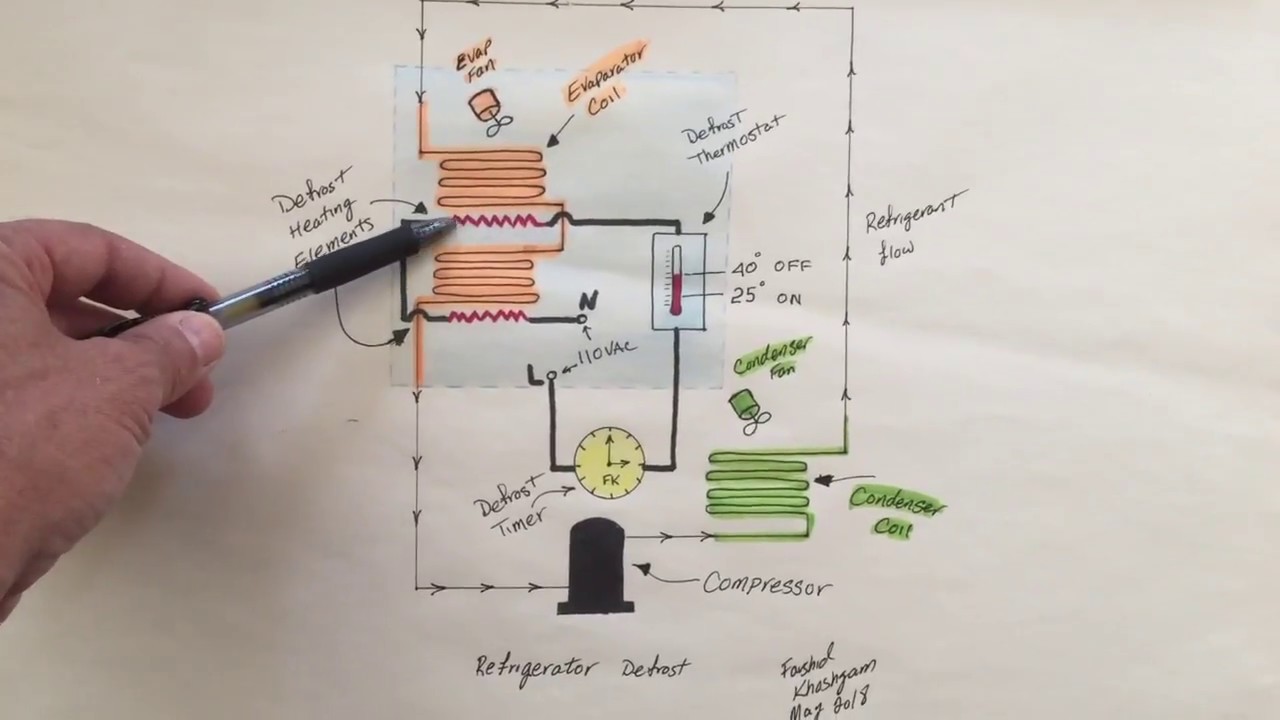 Evap
Fan
Evaporator
Coil
Defrost
Thermostat
Defrost
Heating
Elements
Refrigerant
flow
40° OFF
25° ON
N
110VAC
L
Condenser
Fan
FK
Defrost
Timer
Condenser
Coil
Compressor
Refrigerator Defrost
Farshid
Khoshgam
May 2018